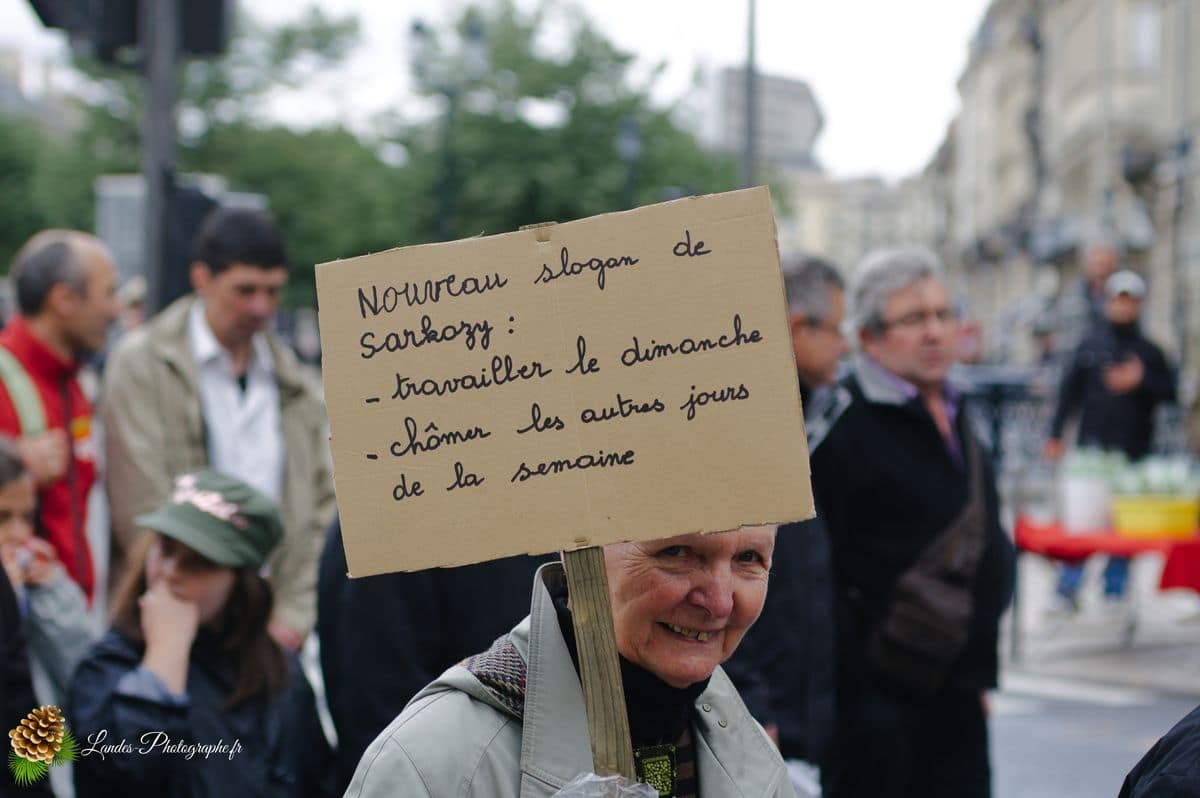 Nouveau slogan de
Sarkozy :
- travailler le dimanche
- chômer les autres jours
de la semaine
Landes-Photographe.fr